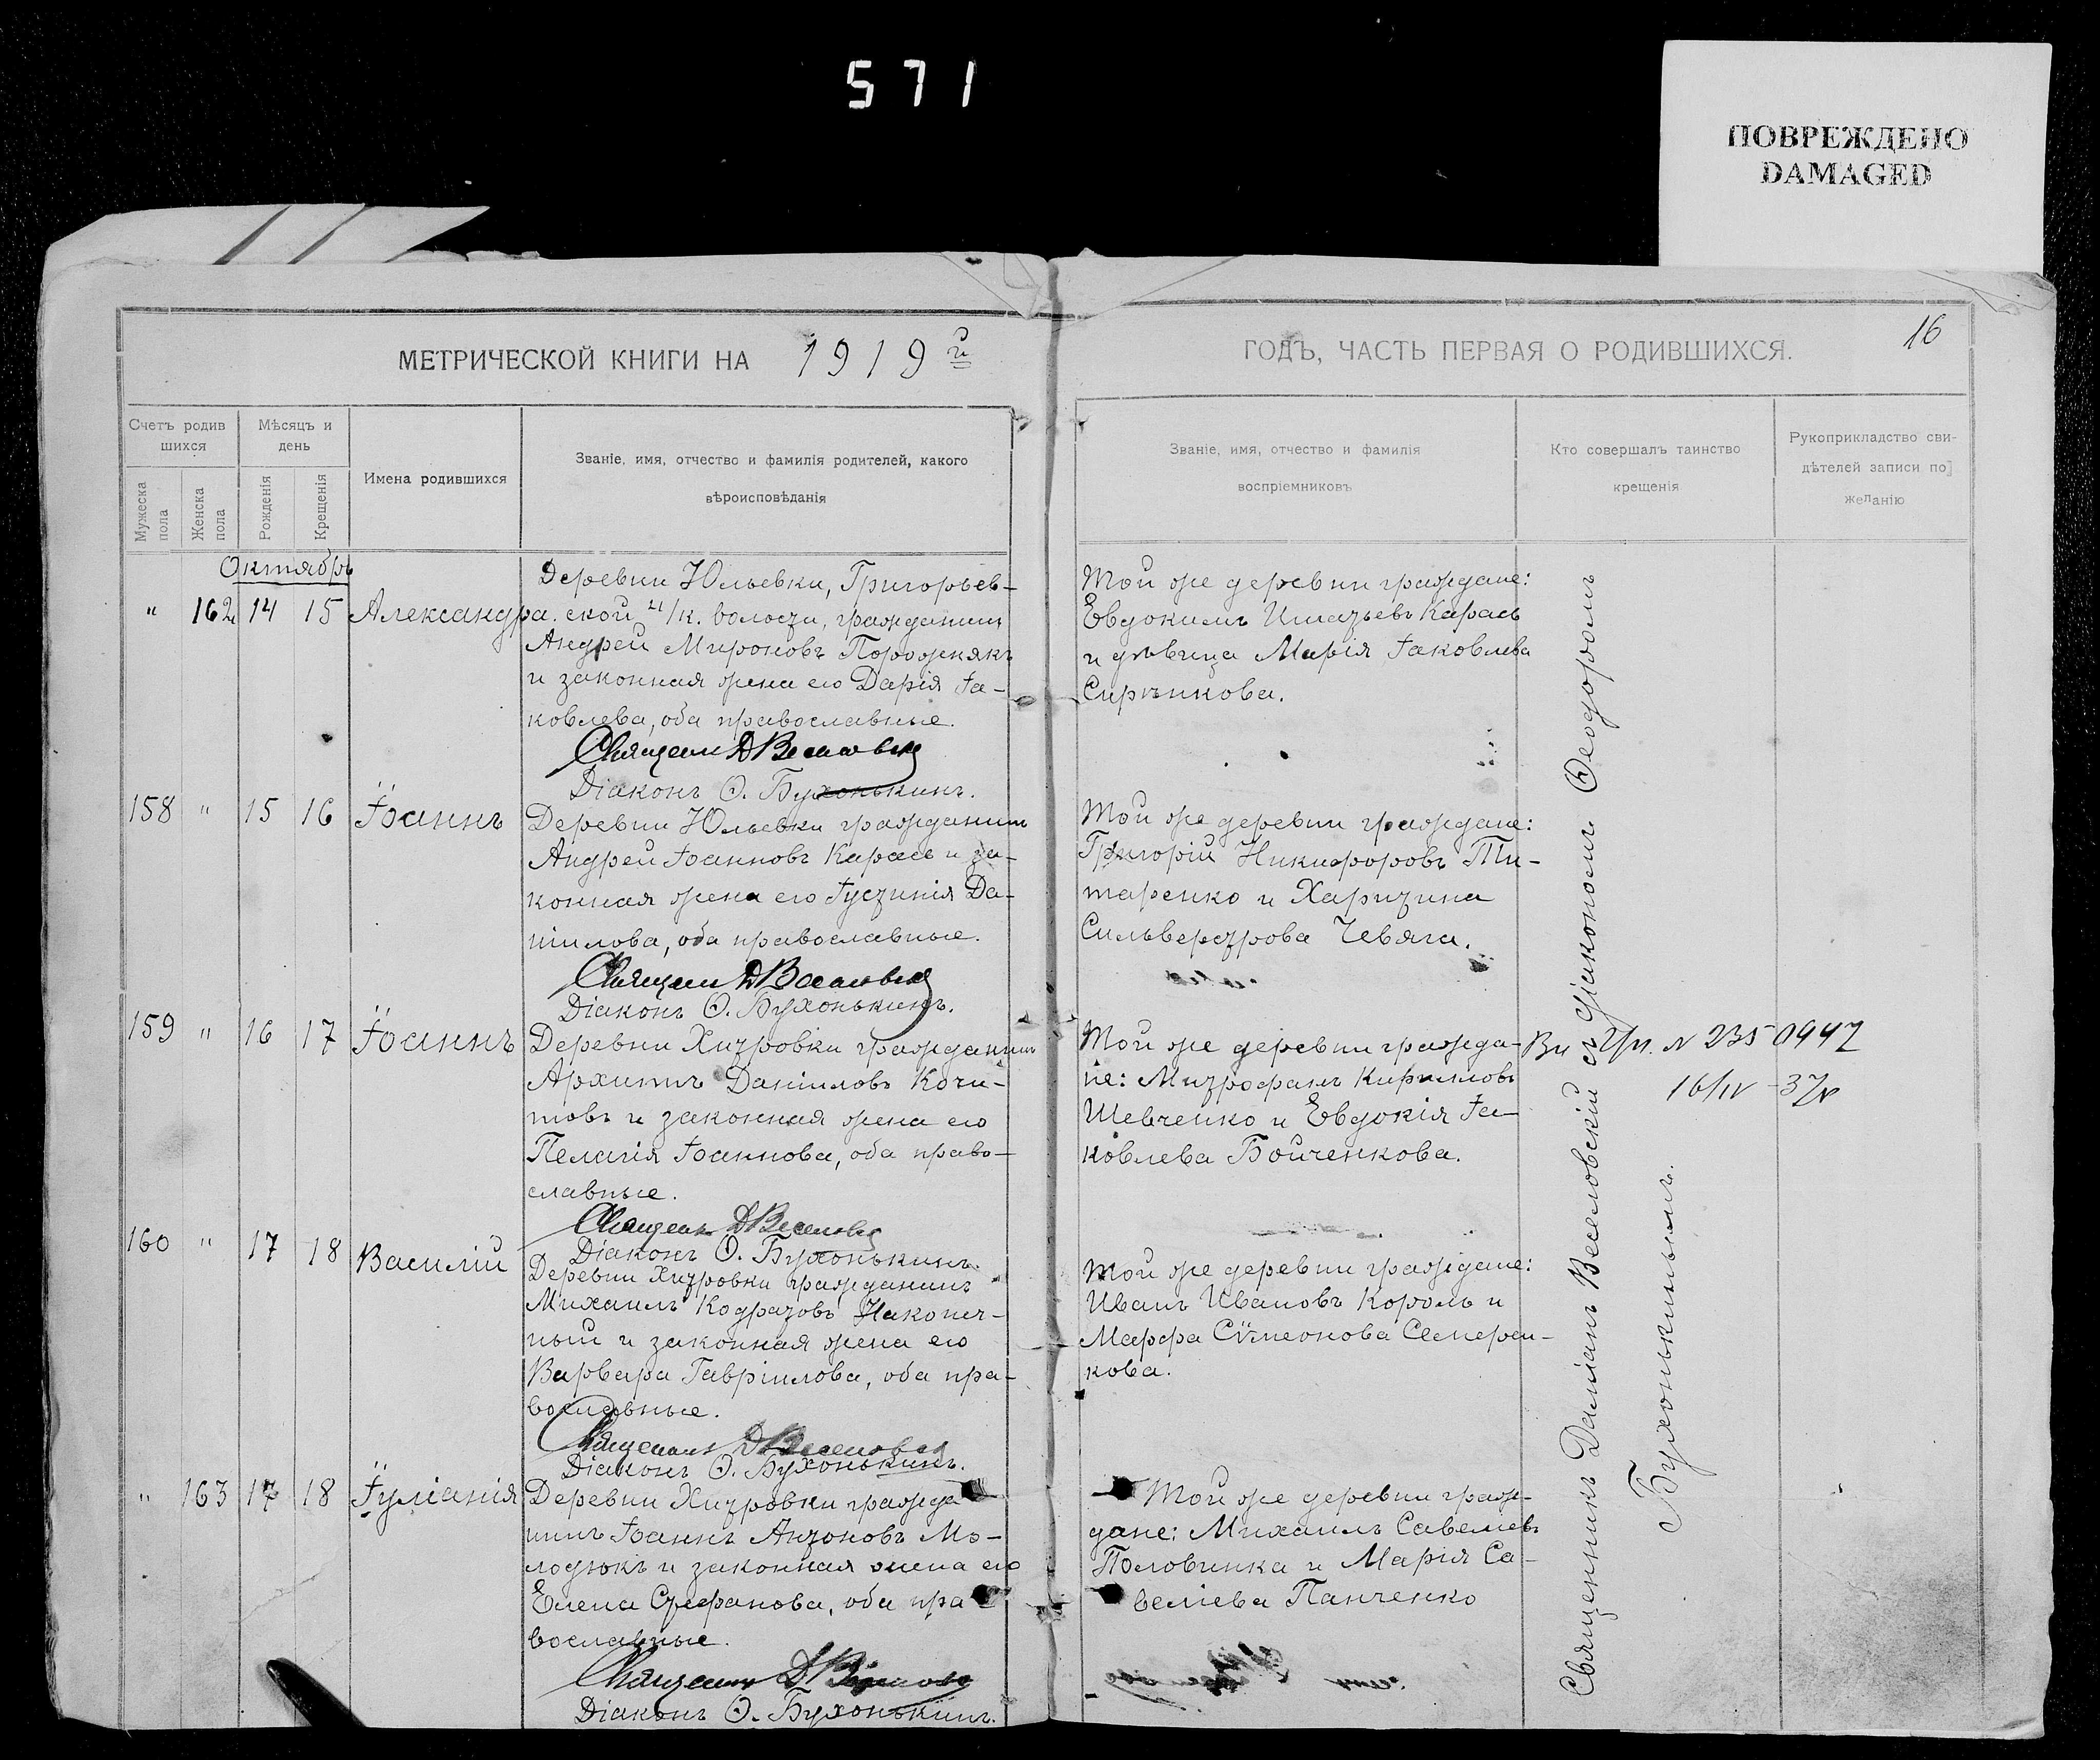 571
ПОВРЕЖДЕНО
DAMAGED
16
МЕТРИЧЕСКОЙ КНИГИ НА 1919й
ГОДЪ, ЧАСТЬ ПЕРВАЯ О РОДИВШИХСЯ.
Счетъ родив
шихся
Мужеска
пола
Женска
пола
Мѣсяцъ и
день
Рожденія
Крещенія
Имена родившихся
Званіе, имя, отчество и фамилія родителей, какого
вѣроисповѣданія
Званіе, имя, отчество и фамилія
воспріемниковъ
Кто совершалъ таинство
крещенія
Рукоприкладство сви-
дѣтелей записи по
желанію
Октябрь
" 162 14 15 Александра.
Деревни Юльевки, Григорьев-
ской волости, гражданинъ
Андрей Мироновъ Порожнякъ
и законная жена его Дарія Іа-
ковлева, оба православные.
Священн Д Веселовскі
Діаконъ Ѳ. Бухонькинъ.
Той же деревни граждане:
Евдокимъ Игнатьевъ Карась
и дѣвица Марія Іаковлева
Сиритникова.
158 " 15 16 Іоаннъ
Деревни Юльевки гражданинъ
Андрей Іоанновъ Карась и за-
конная жена его Іустинія Да-
ніилова, оба православные.
Священн Д Веселовскі
Діаконъ Ѳ. Бухонькинъ.
Той же деревни граждане:
Григорій Никифоровъ Ти-
таренко и Харитина
Сильверстрова Чевяга.
159 " 16 17 Іоаннъ
Деревни Хитровки гражданинъ
Архиппъ Даніиловъ Кочи-
товъ и законная жена его
Пелагія Іоаннова, оба право-
славные.
Священн Д Веселовскі
Діаконъ Ѳ. Бухонькинъ.
Той же деревни гражда-
не: Митрофанъ Кирилловъ
Шевченко и Евдокія Іа-
ковлева Бойченкова.
N 235 0947
16/IV
160 " 17 18 Василій
Деревни Хитровки гражданинъ
Михаилъ Кодратовъ Наконеч-
ный и законная жена его
Варвара Гавріилова, оба пра-
вославные.
Священникъ Д Веселовскі
Діаконъ Ѳ. Бухонькинъ.
Той же деревни граждане:
Иванъ Ивановъ Король и
Марфа Сѵмеонова Семерен-
кова.
" 163 17 18 Іуліанія
Деревни Хитровки гражда
нинъ Іоаннъ Антоновъ Мо-
лодюкъ и законная жена его
Елена Стефанова, оба пра
вославные.
Священн Д Веселовскі
Діаконъ Ѳ. Бухонькинъ.
Той же деревни граж-
дане: Михаилъ Савелиевъ
Половинка и Марія Са-
веліева Панченко
Священникъ Даміанъ Веселовскій съ діакономъ Ѳеодоромъ
Бухонькинымъ.